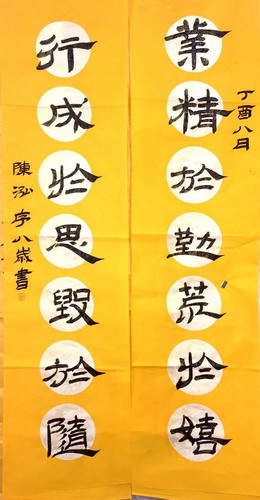 丁酉八月
業精於勤荒於嬉
行成於思毀於隨
陳泓宇八歲書